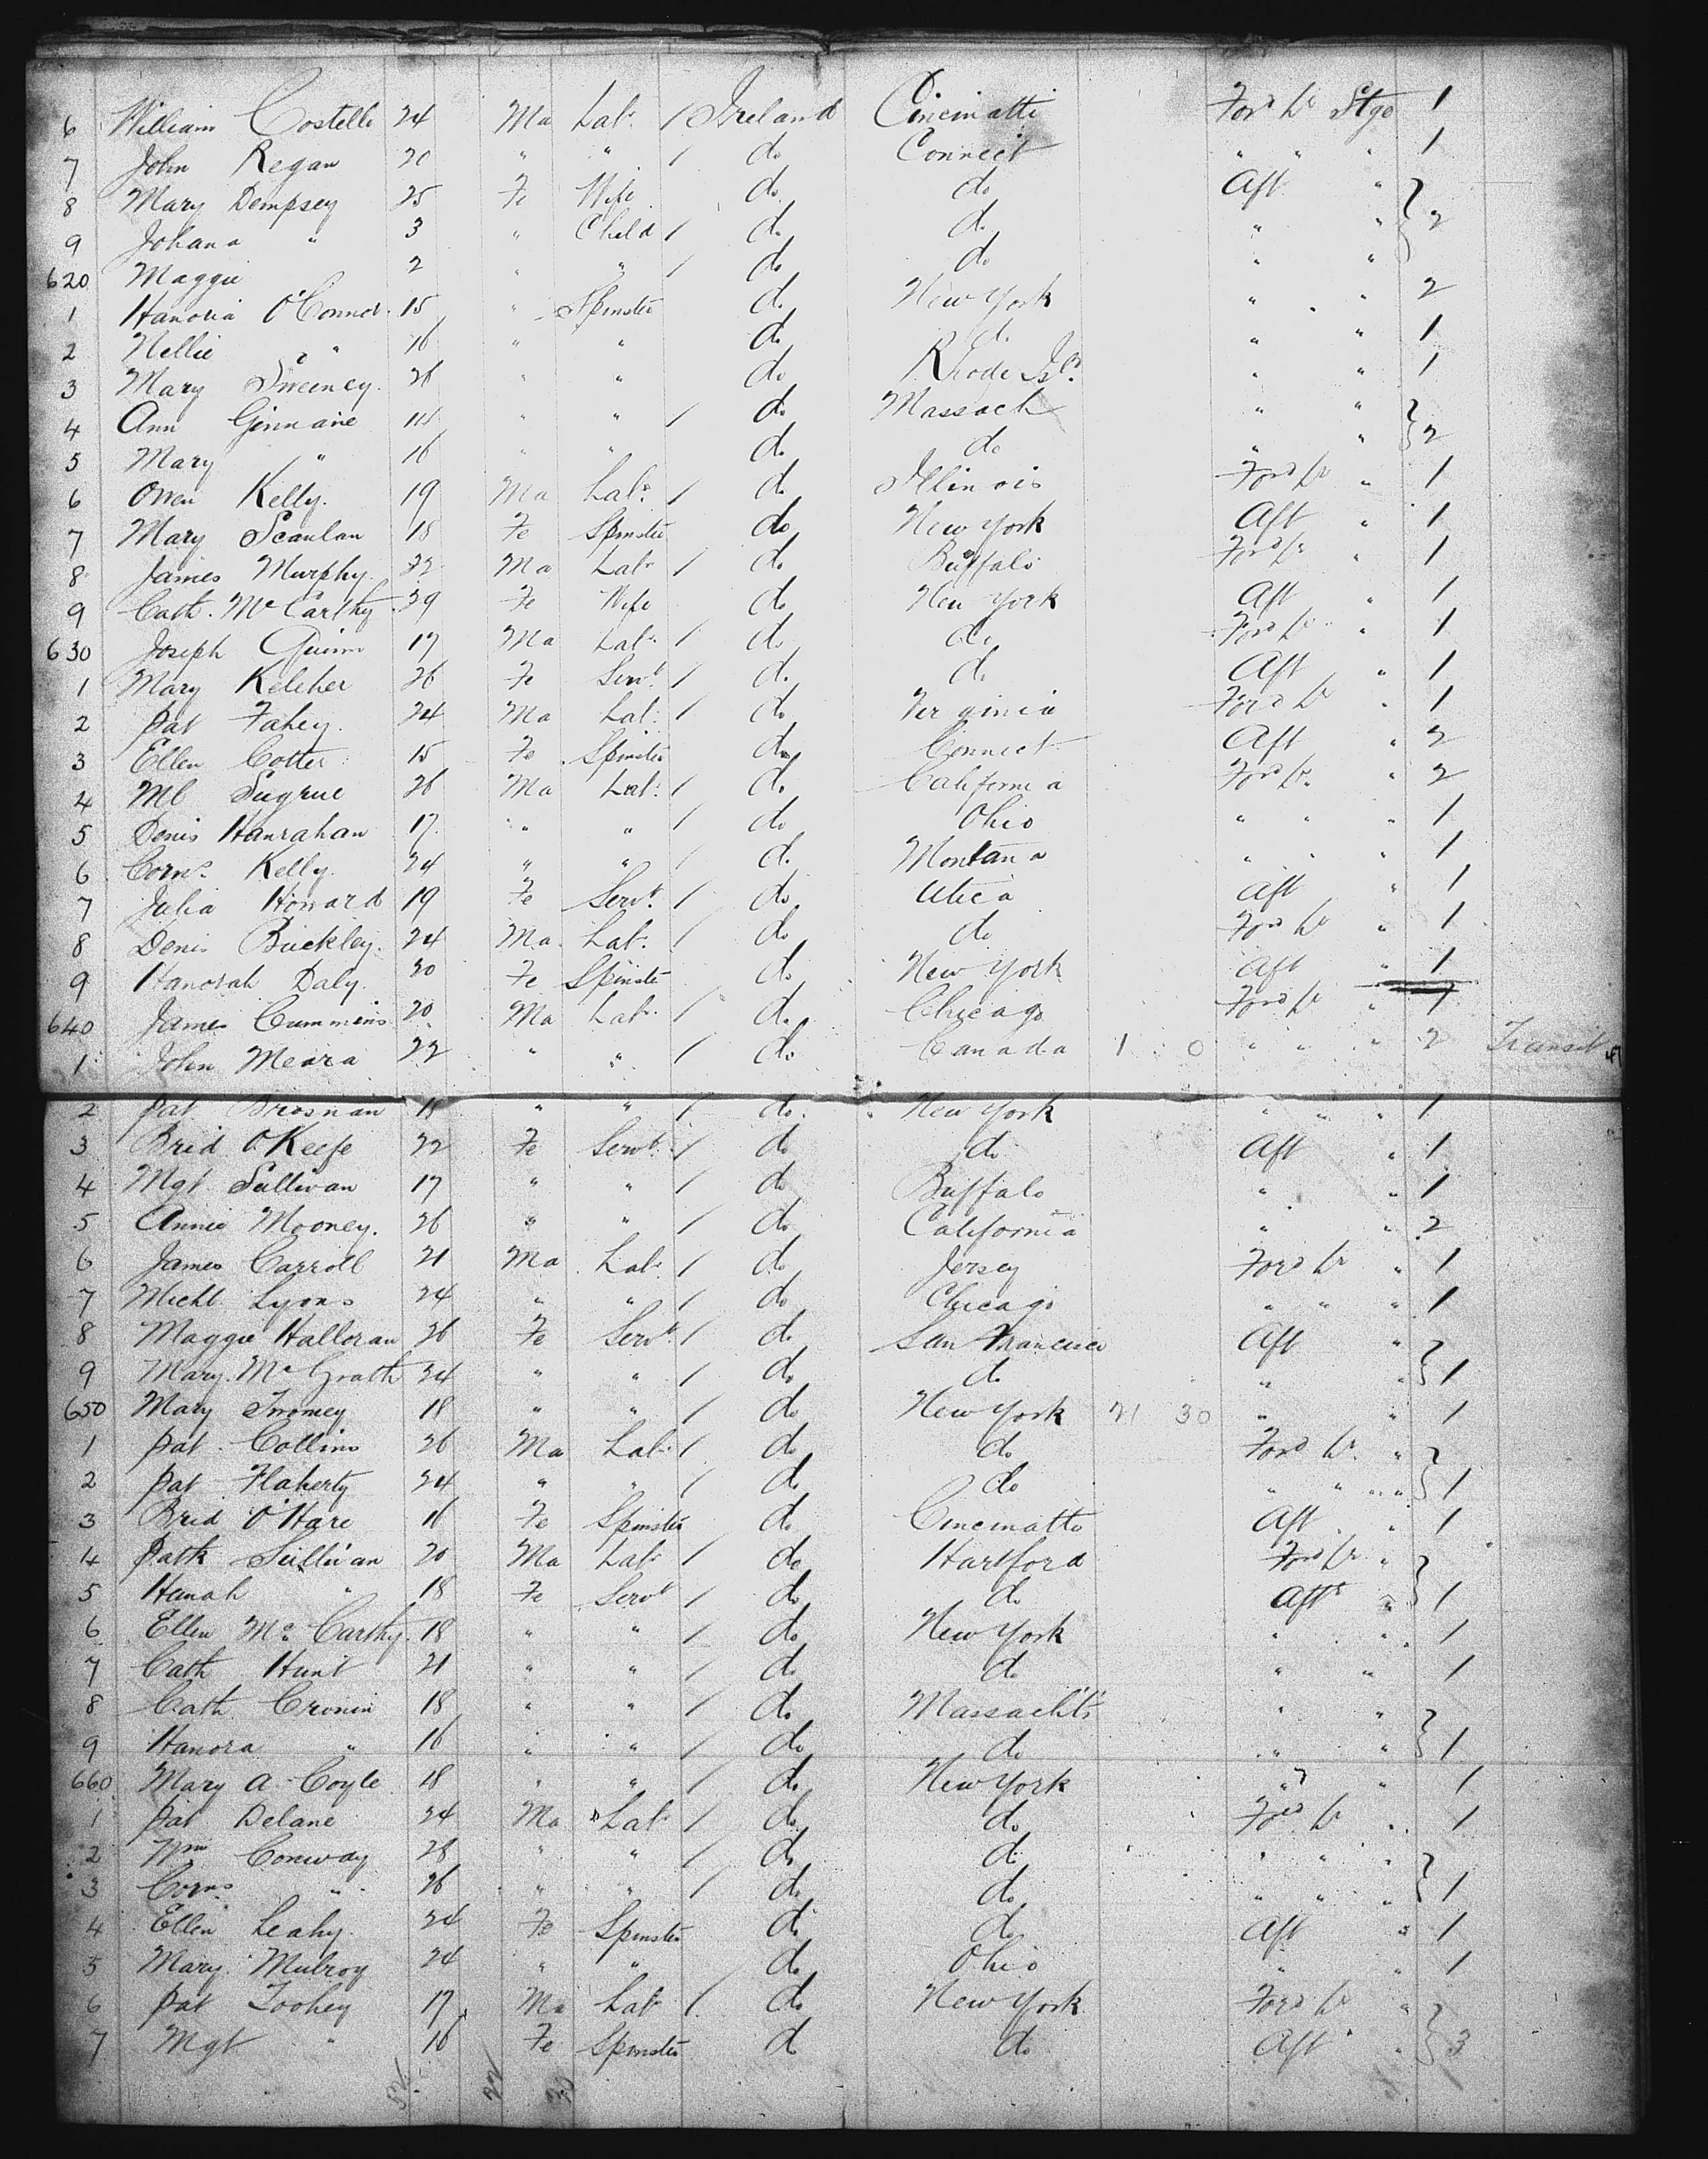 6 William Costello 24 Ma Labr / Ireland Cincinatti Ford Lr Stge 1
7 John Regan 20 " " / do Connect " " " 1
8 Mary Dempsey 25 Fe Wife do do Aft "
9 Johana " 3 " Child / do do " " 2
620 Maggie 2 " " / do do " "
1 Hanoria O'Connor 15 " Spinster do New York " " 2
2 Nellie " 16 " " do do " " 1
3 Mary Sweeney 26 " " do Rhode Isld " " 1
4 Ann 18 " " / do Massach " "
5 Mary " 16 " " do do " " 2
6 Owen Kelly 19 Ma Labr / do Illinois Ford Lr " 1
7 Mary Scanlan 18 Fe Spinster do New York Aft " 1
8 James Murphy 22 Ma Labr / do Buffalo Ford Lr " 1
9 Cath. McCarthy 39 Fe Wife do New York Aft " 1
630 Joseph Quinn 17 Ma Labr / do do Ford Lr " 1
1 Mary Keleher 26 Fe Servt / do do Aft " 1
2 Pat Fahey 24 Ma Labr / do Virginia Ford Lr " 1
3 Ellen Cotter 15 Fe Spinster do Connect Aft " 2
4 Ml Sugrue 26 Ma Labr / do California Ford Lr " 2
5 Denis Hanrahan 17 " " / do Ohio " " " 1
6 Corns Kelly 24 " " / do Montana " " " 1
7 Julia Howard 19 Fe Servt / do Utica Aft " 1
8 Denis Buckley 24 Ma Labr / do do Ford Lr " 1
9 Hanorah Daly 20 Fe Spinster do New York Aft " 1
640 James Cummins 20 Ma Labr / do Chicago Ford Lr " 1
1 John Meara 22 " " / do Canada 1 0 " " " 2 Transit
2 Pat Brosnan 18 " " / do New York " " " 1
3 Brid O'Keefe 22 Fe Servt / do do Aft " 1
4 Mgt Sullivan 17 " " / do Buffalo " " 1
5 Annie Mooney 26 " " / do California " " 2
6 James Carroll 21 Ma Labr / do Jersey Ford Lr " 1
7 Michl Lyons 24 " " / do Chicago " " " 1
8 Maggie Halloran 26 Fe Servt / do San Francisco Aft "
9 Mary McGrath 24 " " / do do " " 1
650 Mary Twomey 18 " " / do New York 21 30 " " 1
1 Pat Collins 26 Ma Labr / do do Ford Lr "
2 Pat Flaherty 24 " " / do do " " " 1
3 Brid O'Hare 16 Fe Spinster do Cincinatto Aft " 1
4 Patk Sullivan 20 Ma Labr / do Hartford Ford Lr "
5 Hanah " 18 Fe Servt / do do Aftr " 1
6 Ellen McCarthy 18 " " / do New York " " 1
7 Cath Hunt 21 " " / do do " " 1
8 Cath Cronin 18 " " / do Massachts " "
9 Hanora " 16 " " / do do " " 1
660 Mary A Coyle 18 " " / do New York " " 1
1 Pat Delane 24 Ma Labr / do do Ford Lr " 1
2 Wm Conway 28 " " / do do " " "
3 Corns " 26 " " / do do " " " 1
4 Ellen Leahy 24 Fe Spinster do do Aft " 1
5 Mary Mulroy 24 " " do Ohio " " 1
6 Pat Toohey 17 Ma Labr / do New York Ford Lr "
7 Mgt " 16 Fe Spinster do do Aft " 3